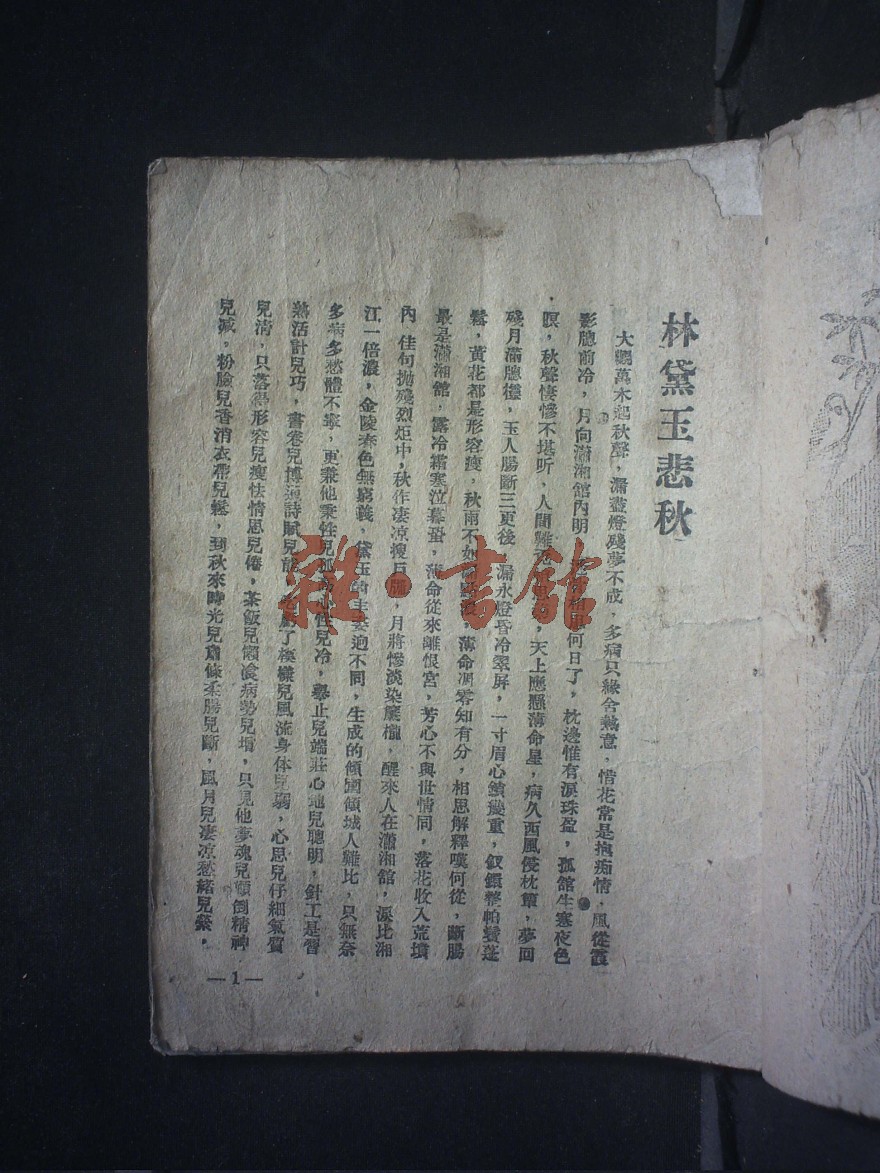 林黛玉悲秋
大觀萬木起秋聲，漏盡燈殘夢不成，多病只緣舍熱意，惜花常是抱痴情，風從霞
影牕前冷，月向瀟湘館內明，相思何日了，枕邊惟有淚珠盈，孤館生寒夜色
暝，秋聲悽慘不堪听，人間難，天上應懸薄命星，病久西風侵枕簟，夢回
殘月滿牕櫳，玉人腸斷三更後，漏永燈昏冷翠屏，一寸眉心鎖幾重，釵鐶整帕鬢蓬
鬆，黃花都是形容瘦，秋雨不如，薄命凋零知有分，相思解釋嘆何從，斷腸
最是瀟湘館，露冷霜寒泣暮蛩，薄命從來離恨宮，芳心不與世情同，落花收入荒墳
內，佳句拋殘烈炬中，秋作凄凉搜戶牖，月將慘淡染簾櫳，醒來人在瀟湘館，淚比湘
江一倍濃，金陵春色無窮義，黛玉迥不同，生成的傾國傾城人難比，只無奈
多病多愁體不寧，更兼他秉性兒孤心性兒冷，舉止兒端莊心地兒聰明，針工是習
熟活計兒巧，書卷兒博通詩賦兒能，了模樣兒風流身体兒弱，心思兒仔細氣質
兒清，只落得形容兒瘦怯情思兒倦，茶飯兒懶飡病勢兒增，只見他夢魂兒顛倒精神
兒減，粉臉兒香消衣帶兒鬆，到秋來時光兒蕭條柔腸兒斷，風月兒凄凉愁緒兒縈。
—1—
雜·書館